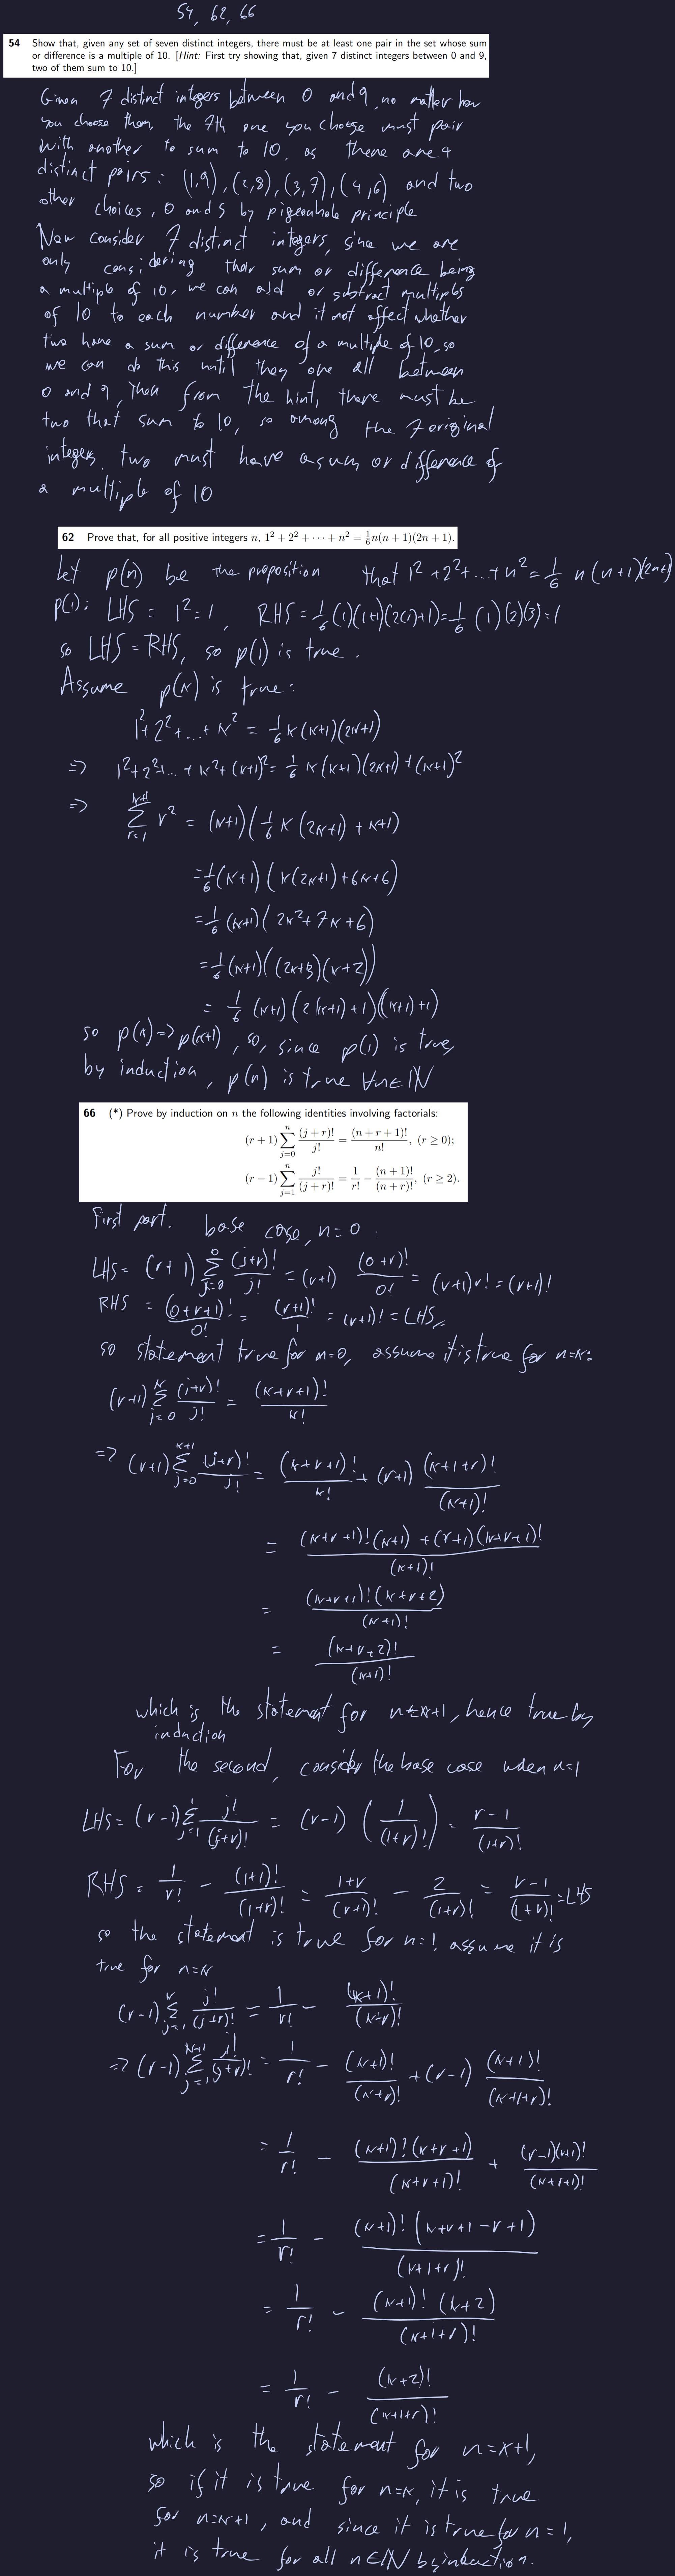 54, 62, 66
54 Show that, given any set of seven distinct integers, there must be at least one pair in the set whose sum
or difference is a multiple of 10. [Hint: First try showing that, given 7 distinct integers between 0 and 9,
two of them sum to 10.]
Given 7 distinct integers between 0 and 9, no matter how
you choose them, the 7th one you choose must pair
with another to sum to 10, as there are 4
distinct pairs: (1,9), (2,8), (3,7), (4,6) and two
other choices, 0 and 5 by pigeonhole principle
Now consider 7 distinct integers, since we are
only considering their sum or difference being
a multiple of 10, we can add or subtract multiples
of 10 to each number and it not affect whether
two have a sum or difference of a multiple of 10, so
we can do this until they are all between
0 and 9, then from the hint, there must be
two that sum to 10, so among the 7 original
integers, two must have a sum or difference of
a multiple of 10
62 Prove that, for all positive integers n, 1² + 2² + ··· + n² = 1/6 n(n + 1)(2n + 1).
Let p(n) be the proposition that 1² + 2² + ... + n² = 1/6 n(n+1)(2n+1)
p(1): LHS = 1² = 1, RHS = 1/6 (1)(1+1)(2(1)+1) = 1/6 (1)(2)(3) = 1
so LHS = RHS, so p(1) is true.
Assume p(k) is true:
1² + 2² + ... + k² = 1/6 k(k+1)(2k+1)
=> 1² + 2² + ... + k² + (k+1)² = 1/6 k(k+1)(2k+1) + (k+1)²
=> Σ_{r=1}^{k+1} r² = (k+1)(1/6 k(2k+1) + k+1)
= 1/6 (k+1)(k(2k+1) + 6k+6)
= 1/6 (k+1)(2k² + 7k + 6)
= 1/6 (k+1)((2k+3)(k+2))
= 1/6 (k+1)(2(k+1)+1)((k+1)+1)
so p(k) => p(k+1), so, since p(1) is true,
by induction, p(n) is true ∀n∈ℕ
66 (*) Prove by induction on n the following identities involving factorials:
(r + 1) Σ_{j=0}^{n} (j + r)!/j! = (n + r + 1)!/n!, (r ≥ 0);
(r − 1) Σ_{j=1}^{n} j!/(j + r)! = 1/r! − (n + 1)!/(n + r)!, (r ≥ 2).
First part. base case, n=0:
LHS = (r+1) Σ_{j=0}^{0} (j+r)!/j! = (r+1) (0+r)!/0! = (r+1)r! = (r+1)!
RHS = (0+r+1)!/0! = (r+1)!/1 = (r+1)! = LHS,
so statement true for n=0, assume it is true for n=k:
(r+1) Σ_{j=0}^{k} (j+r)!/j! = (k+r+1)!/k!
=> (r+1) Σ_{j=0}^{k+1} (j+r)!/j! = (k+r+1)!/k! + (r+1) (k+1+r)!/(k+1)!
= ((k+r+1)!(k+1) + (r+1)(k+r+1)!)/(k+1)!
= (k+r+1)!(k+r+2)/(k+1)!
= (k+r+2)!/(k+1)!
which is the statement for n=k+1, hence true by
induction
For the second, consider the base case when n=1
LHS = (r-1) Σ_{j=1}^{1} j!/(j+r)! = (r-1) (1/(1+r)!) = (r-1)/(1+r)!
RHS = 1/r! - (1+1)!/(1+r)! = (1+r)/(r+1)! - 2/(1+r)! = (r-1)/(1+r)! = LHS
so the statement is true for n=1, assume it is
true for n=k
(r-1) Σ_{j=1}^{k} j!/(j+r)! = 1/r! - (k+1)!/(k+r)!
=> (r-1) Σ_{j=1}^{k+1} j!/(j+r)! = 1/r! - (k+1)!/(k+r)! + (r-1) (k+1)!/(k+1+r)!
= 1/r! - (k+1)!(k+r+1)/(k+r+1)! + (r-1)(k+1)!/(k+r+1)!
= 1/r! - (k+1)!(k+r+1-r+1)/(k+1+r)!
= 1/r! - (k+1)!(k+2)/(k+1+r)!
= 1/r! - (k+2)!/(k+1+r)!
which is the statement for n=k+1,
so if it is true for n=k, it is true
for n=k+1, and since it is true for n=1,
it is true for all n∈ℕ by induction.